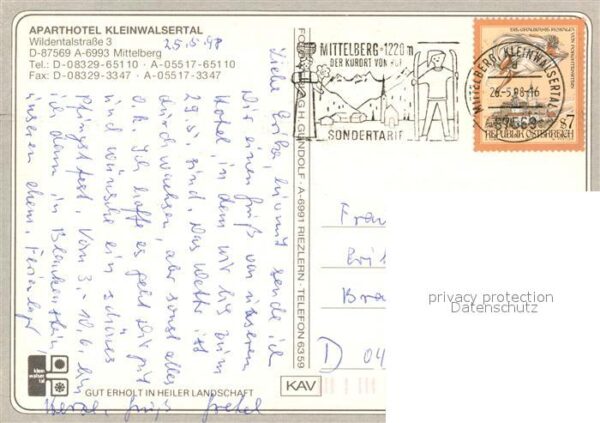 APARTHOTEL KLEINWALSERTAL
Wildentalstraße 3
D-87569 A-6993 Mittelberg
Tel.: D-08329-65110 · A-05517-65110
Fax: D-08329-3347 · A-05517-3347
25.5.98
Liebe Erika, hiermit sende ich
Dir einen Gruß von unserem
Hotel, in dem wir bis zum
29.5. sind. Das Wetter ist
durchwachsen, aber sonst alles
o.k. Ich hoffe es geht Dir gut
und wünsche ein schönes
Pfingstfest. Vom 3.-10.6. bin
ich dann in Blankenstein,
unserem ehem. Ferienlager
Herzl. Gruß Gretel
klein
walser
tal
GUT ERHOLT IN HEILER LANDSCHAFT
FOTO VERLAG H. GUNDOLF · A-6991 RIEZLERN · TELEFON 6359
KAV
MITTELBERG · 1220 m
DER KURORT VON
SONDERTARIF
MITTELBERG, KLEINWALSERTAL
26.-5.98-16
87569
REPUBLIK ÖSTERREICH
S7
Frau
Eri
Bra
D 04
privacy protection
Datenschutz